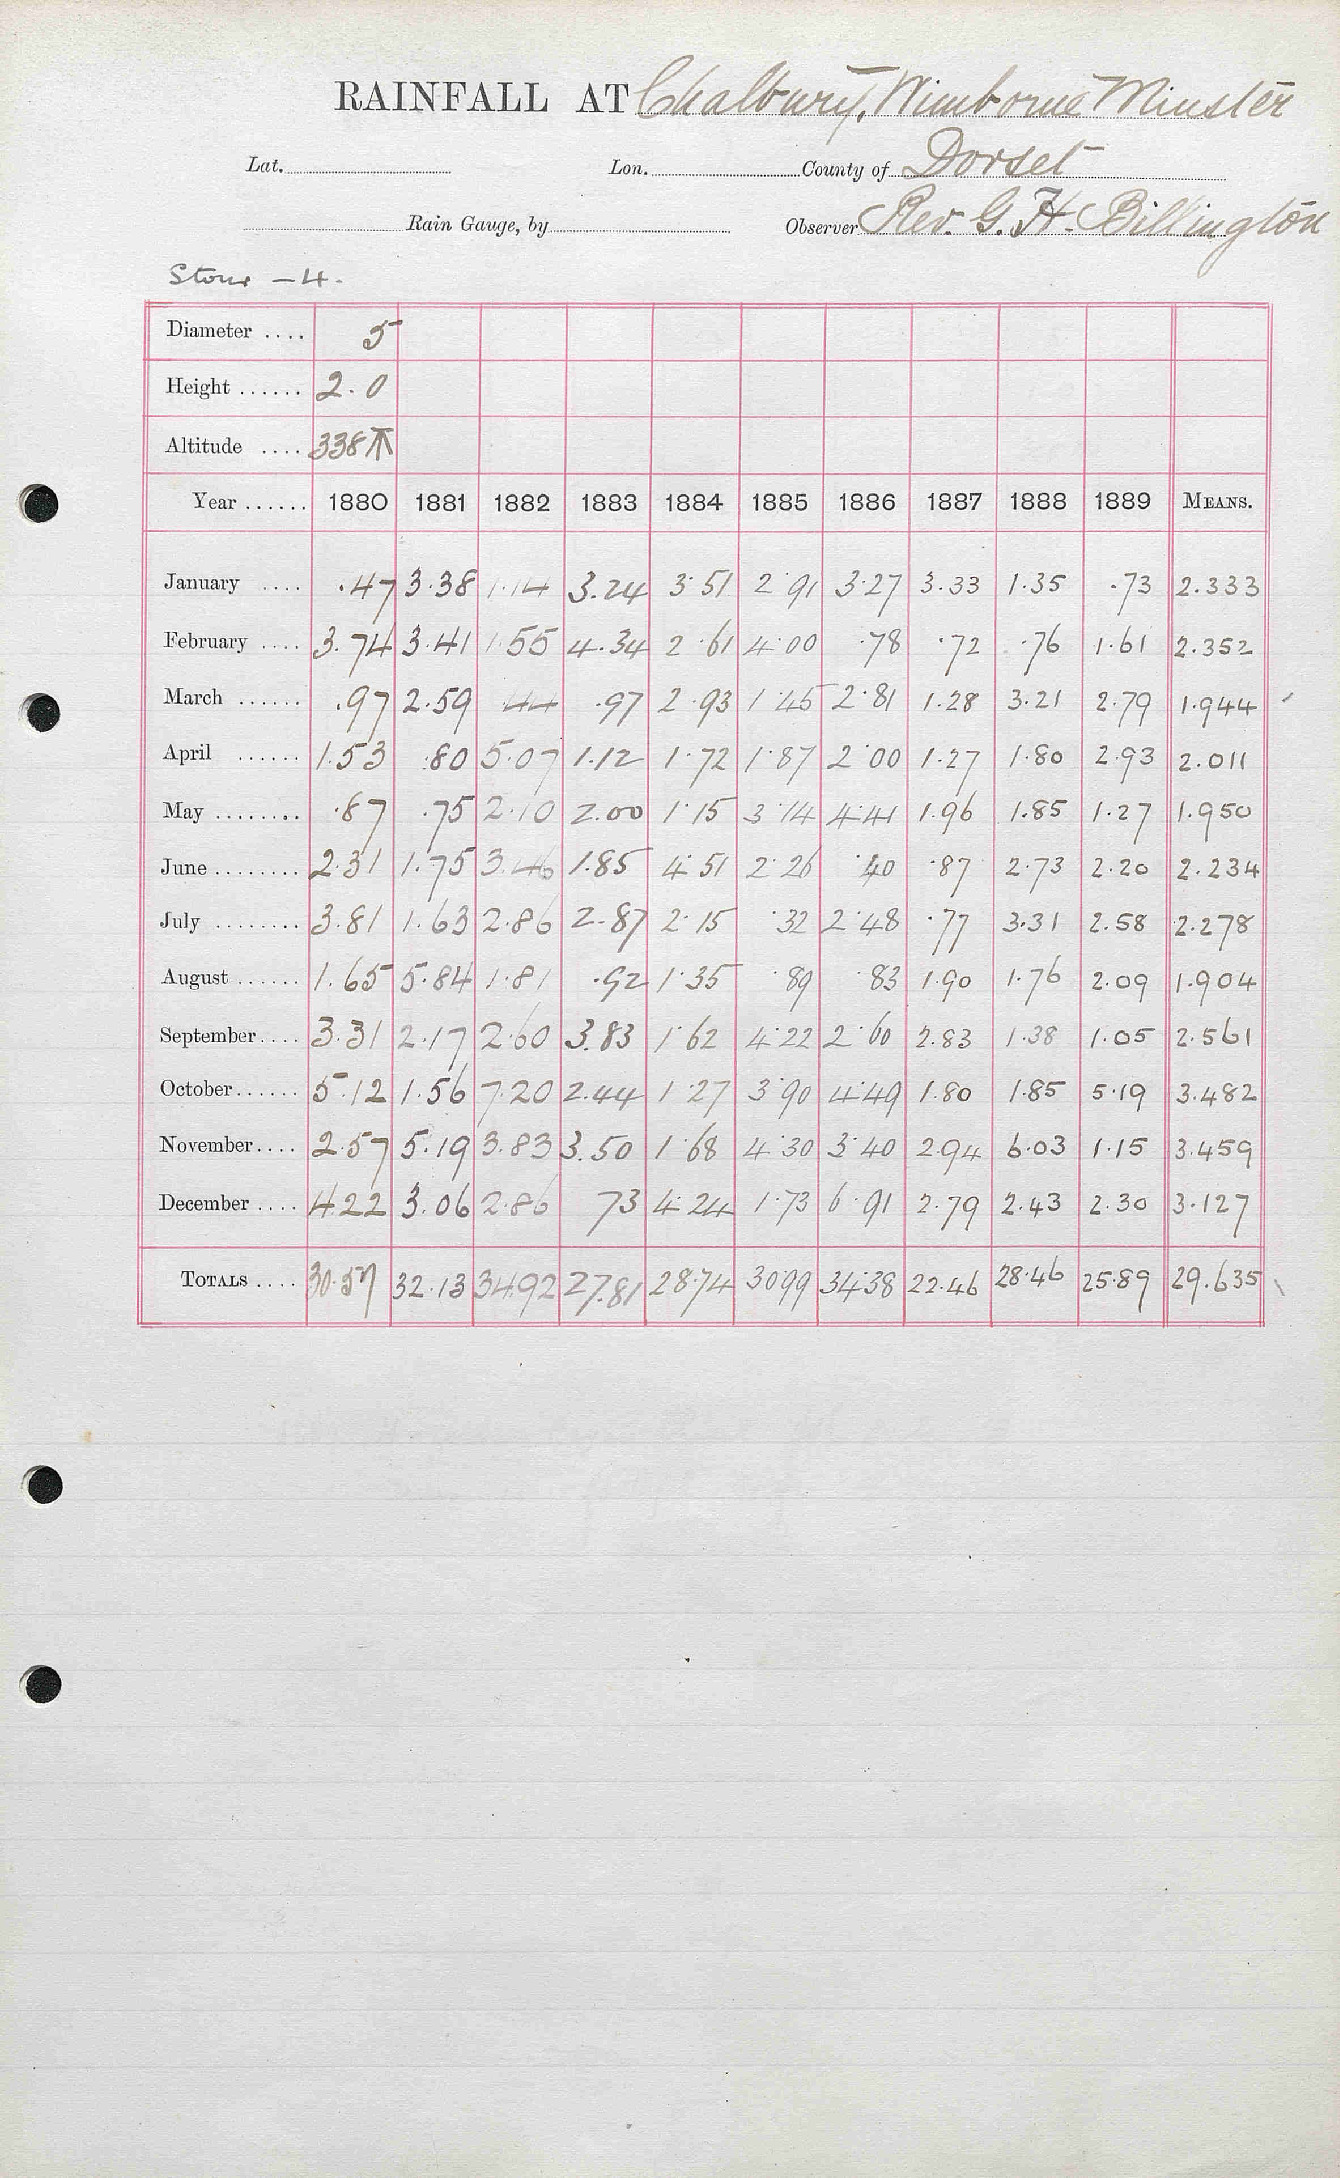 RAINFALL AT Chalbury, Wimborne Minster
Lat. Lon. County of Dorset
Rain Gauge, by Observer Rev. G. H. Billington
Stour - 4.
Diameter .... 5
Height ...... 2.0
Altitude .... 338
Year ...... 1880 1881 1882 1883 1884 1885 1886 1887 1888 1889 MEANS.
January .... .47 3.38 1.14 3.24 3.51 2.91 3.27 3.33 1.35 .73 2.333
February .... 3.74 3.41 1.55 4.34 2.61 4.00 .78 .72 .76 1.61 2.352
March ...... .97 2.59 .44 .97 2.93 1.45 2.81 1.28 3.21 2.79 1.944
April ...... 1.53 .80 5.07 1.12 1.72 1.87 2.00 1.27 1.80 2.93 2.011
May ........ .87 .75 2.10 2.00 1.15 3.14 4.41 1.96 1.85 1.27 1.950
June ........ 2.31 1.75 3.46 1.85 4.51 2.26 .40 .87 2.73 2.20 2.234
July ........ 3.81 1.63 2.86 2.87 2.15 .32 2.48 .77 3.31 2.58 2.278
August ...... 1.65 5.84 1.81 .92 1.35 .89 .83 1.90 1.76 2.09 1.904
September.... 3.31 2.17 2.60 3.83 1.62 4.22 2.60 2.83 1.38 1.05 2.561
October...... 5.12 1.56 7.20 2.44 1.27 3.90 4.49 1.80 1.85 5.19 3.482
November.... 2.57 5.19 3.83 3.50 1.68 4.30 3.40 2.94 6.03 1.15 3.459
December .... 4.22 3.06 2.86 73 4.24 1.73 6.91 2.79 2.43 2.30 3.127
TOTALS .... 30.57 32.13 34.92 27.81 28.74 30.99 34.38 22.46 28.46 25.89 29.635